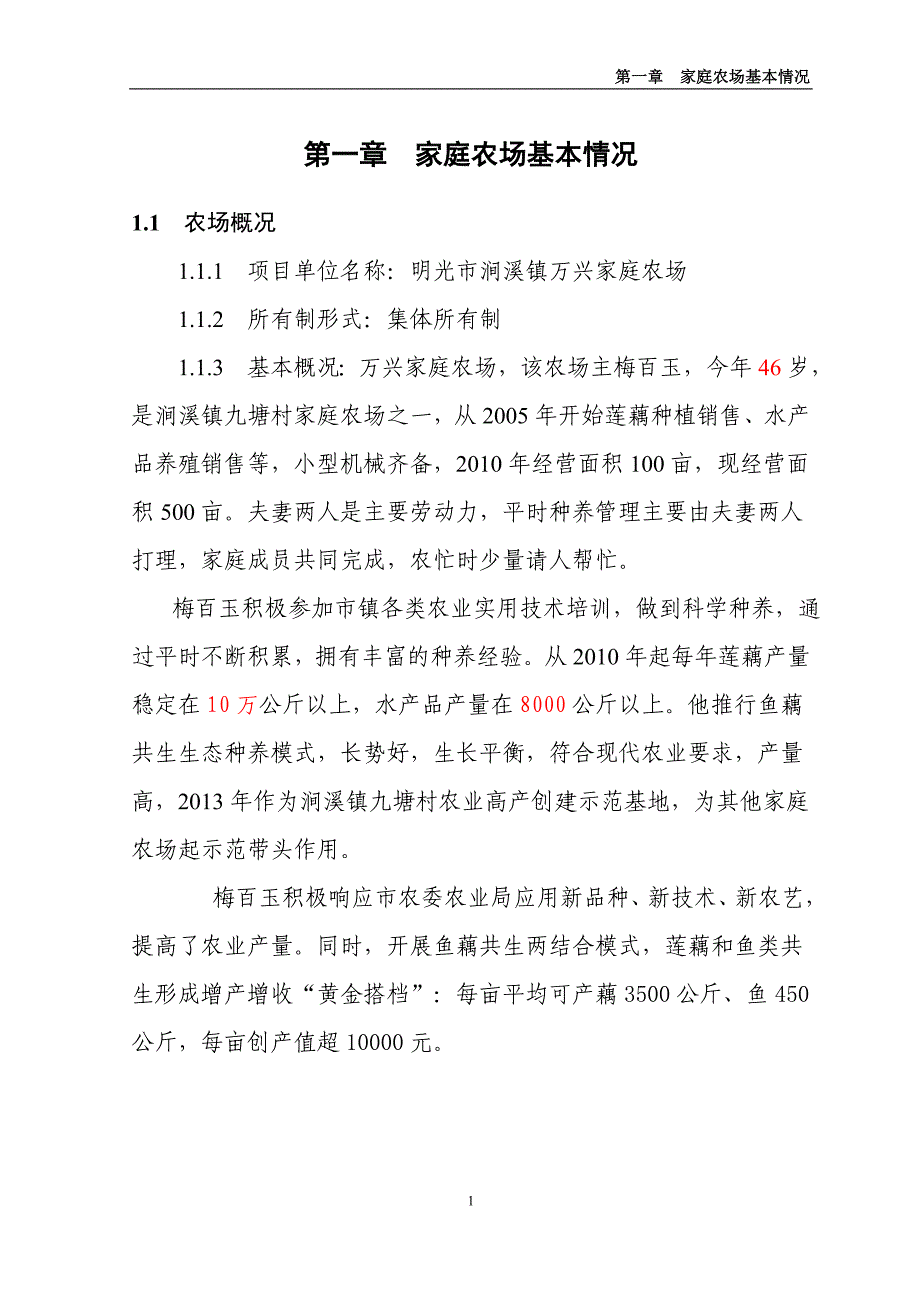 第一章　家庭农场基本情况
第一章　家庭农场基本情况
1.1　农场概况
1.1.1　项目单位名称：明光市涧溪镇万兴家庭农场
1.1.2　所有制形式：集体所有制
1.1.3　基本概况：万兴家庭农场，该农场主梅百玉，今年 46 岁，
是涧溪镇九塘村家庭农场之一，从 2005 年开始莲藕种植销售、水产
品养殖销售等，小型机械齐备，2010 年经营面积 100 亩，现经营面
积 500 亩。夫妻两人是主要劳动力，平时种养管理主要由夫妻两人
打理，家庭成员共同完成，农忙时少量请人帮忙。
梅百玉积极参加市镇各类农业实用技术培训，做到科学种养，通
过平时不断积累，拥有丰富的种养经验。从 2010 年起每年莲藕产量
稳定在 10 万公斤以上，水产品产量在 8000 公斤以上。他推行鱼藕
共生生态种养模式，长势好，生长平衡，符合现代农业要求，产量
高，2013 年作为涧溪镇九塘村农业高产创建示范基地，为其他家庭
农场起示范带头作用。
梅百玉积极响应市农委农业局应用新品种、新技术、新农艺，
提高了农业产量。同时，开展鱼藕共生两结合模式，莲藕和鱼类共
生形成增产增收“黄金搭档”：每亩平均可产藕 3500 公斤、鱼 450
公斤，每亩创产值超 10000 元。
1